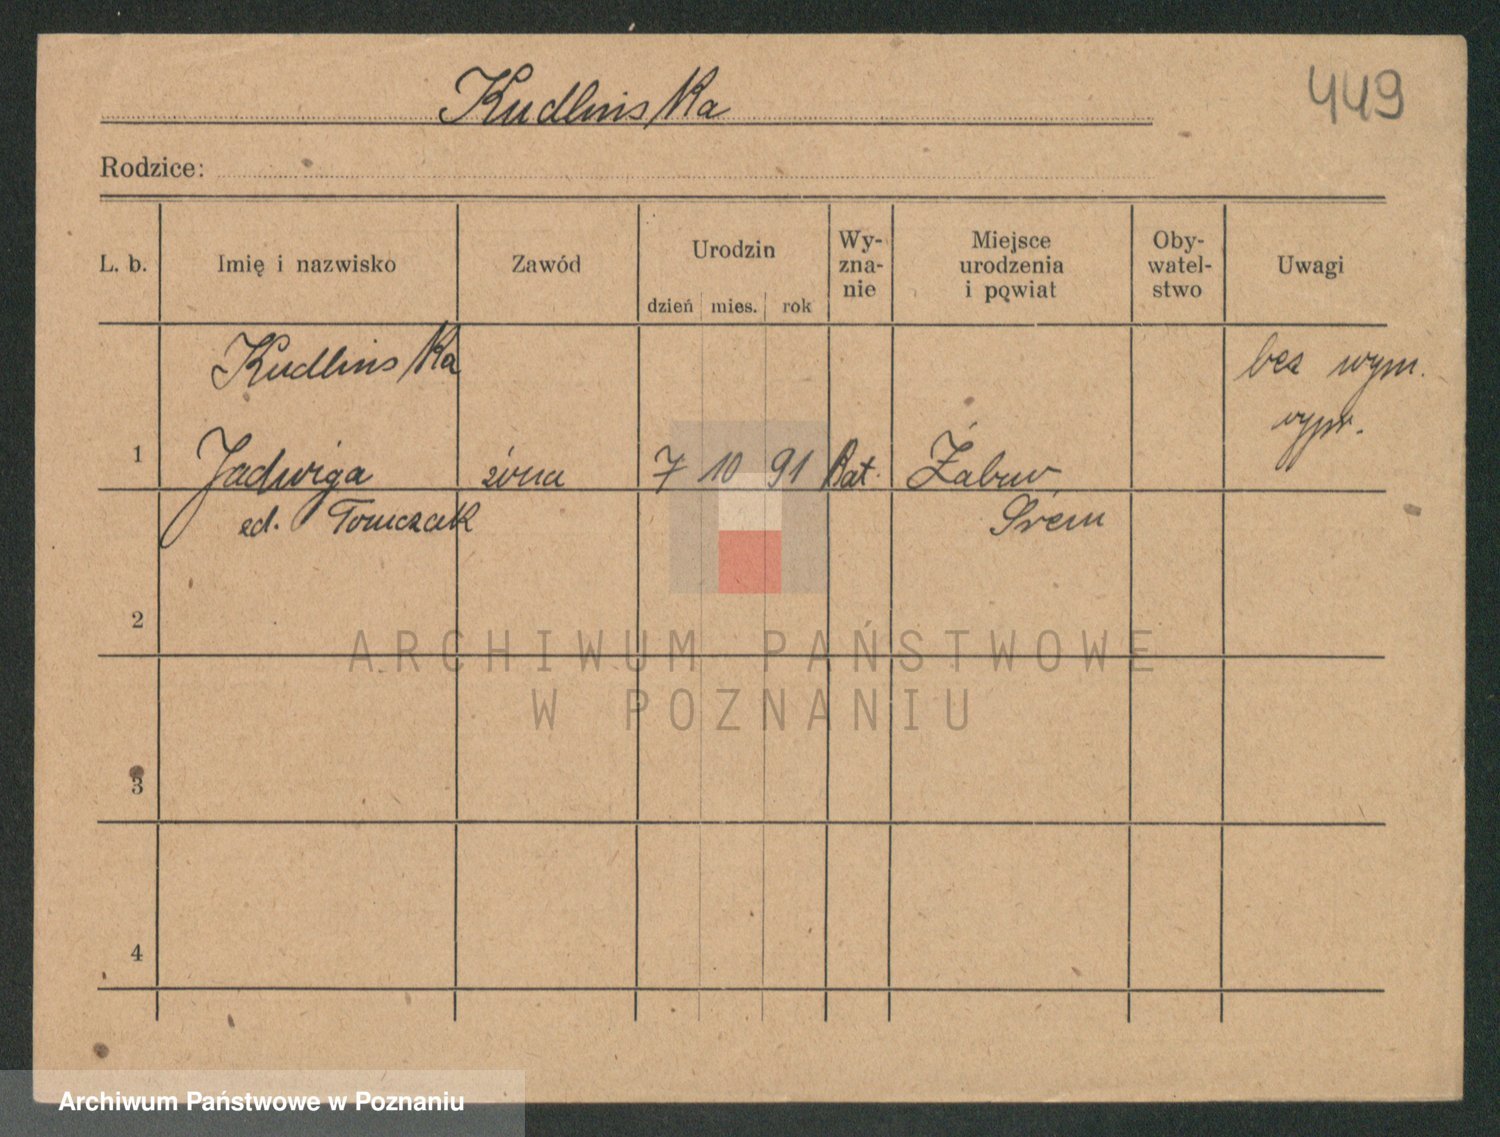 Kudlińska
449
Rodzice:
L. b. Imię i nazwisko Zawód Urodzin dzień mies. rok Wy-zna-nie Miejsce urodzenia i powiat Oby-watel-stwo Uwagi
Kudlińska bez wym.
wypr.
1 Jadwiga żona 7 10 91 kat. Żabno
zd. Tomczak Śrem
2
ARCHIWUM PAŃSTWOWE
W POZNANIU
3
4
Archiwum Państwowe w Poznaniu